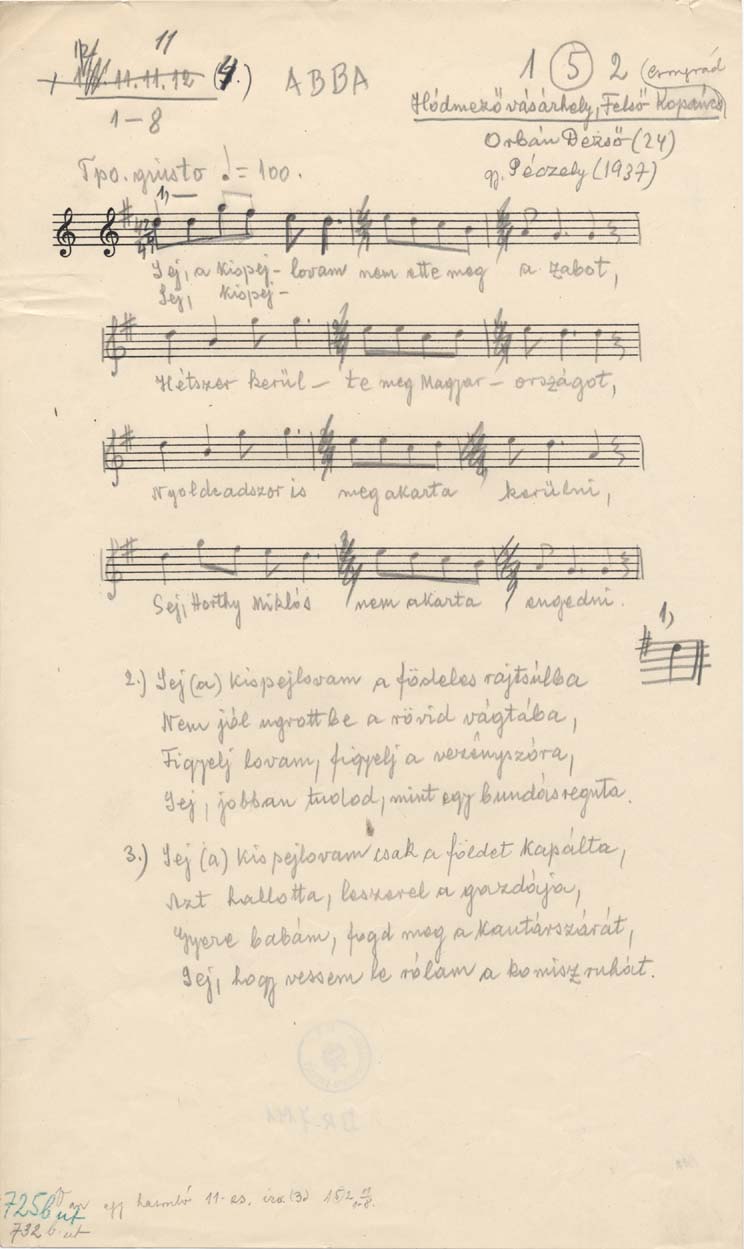 11
11.11.12 (4.) ABBA 1 5 2 (Csongrád
1-8 Hódmezővásárhely, Felső Kopáncs)
Orbán Dezső (24)
Tpo. giusto ♩= 100. gy. Péczely (1937)
1)
Sej, a kispej- lovam nem ette meg a zabot,
Sej, kispej-
Hétszer kerül- te meg Magyar- országot,
Nyolcadszor is meg akarta kerülni,
Sej, Horthy Miklós nem akarta engedni.
1)
2.) Sej (a) kispejlovam a födeles rajtsúlba
Nem jól ugrott be a rövid vágtába,
Figyelj lovam, figyelj a vezényszóra,
Sej, jobban tudod, mint egy bundásreguta.
3.) Sej (a) kispejlovam csak a földet kapálta,
Azt hallotta, leszerel a gazdája,
Gyere babám, fogd meg a kantárszárát,
Sej, hogy vessem le rólam a komisz ruhát.
725b ut
Van egy hasonló 11-es,
732 b. ut